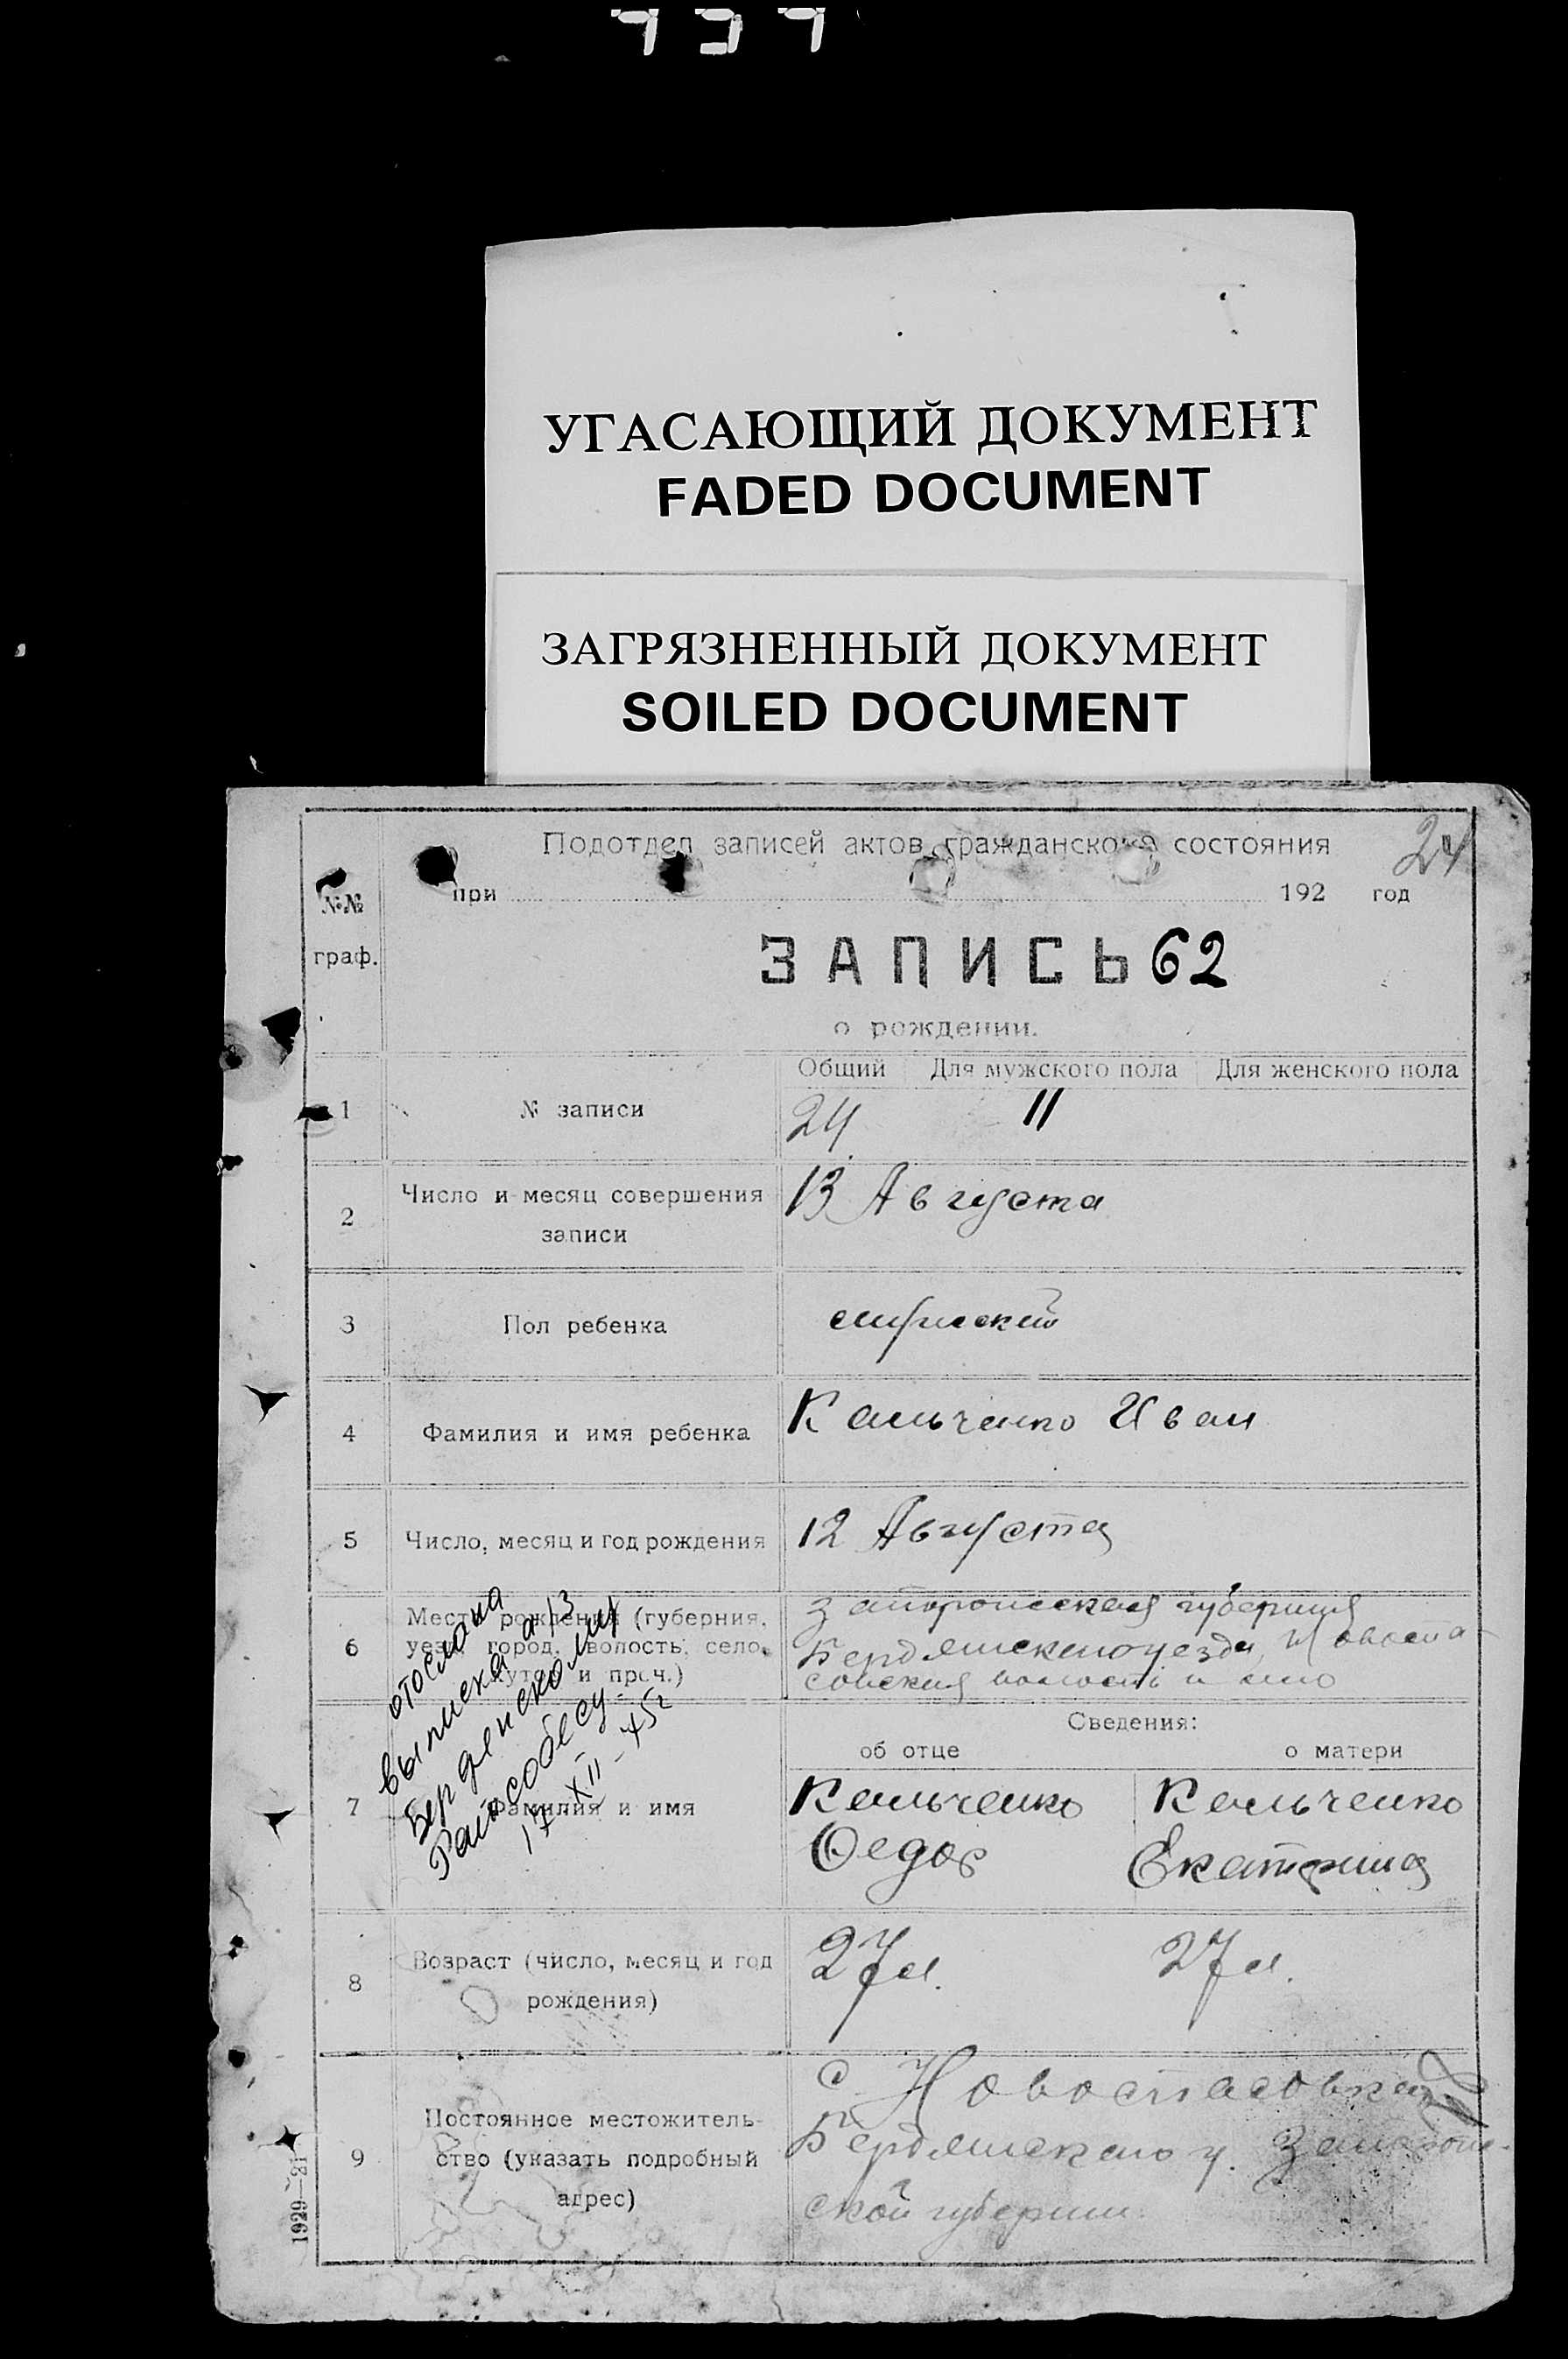 УГАСАЮЩИЙ ДОКУМЕНТ
FADED DOCUMENT
ЗАГРЯЗНЕННЫЙ ДОКУМЕНТ
SOILED DOCUMENT
Подотдел записей актов гражданского состояния 24
при 192 год
№№
граф.
ЗАПИСЬ 62
о рождении.
Общий Для мужского пола Для женского пола
1 № записи 24 11
2 Число и месяц совершения 13 Августа
записи
3 Пол ребенка
4 Фамилия и имя ребенка Кальченко Иван
5 Число, месяц и год рождения 12 Августа
6 Место рождения (губерния, Запорожская губерния
уезд, город, волость, село, Бердянского уезда, Новоспа-
хутор и проч.) совская волость и село
отослана
выписка а/з
Бердянскому
Райсобесу
17-XII-45г
Сведения:
об отце о матери
7 Фамилия и имя Кальченко Кальченко
Федор Екатерина
8 Возраст (число, месяц и год 27 л. 27 л.
рождения)
9 Постоянное местожитель- с. Новоспасовка
ство (указать подробный Бердянского у. Запорож-
адрес) ской губернии
1929—21